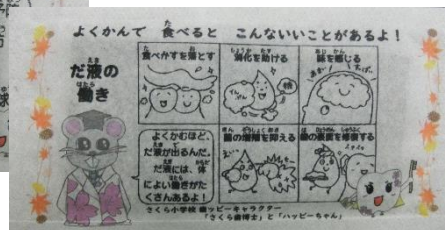 よくかんで 食べると こんないいことがあるよ！
だ液の
働き
食べかすを落とす
消化を助ける
味を感じる
よくかむほど、
だ液が出るんだ。
だ液には、体
によい働きがた
くさんあるよ！
菌の増殖を抑える
歯の表面を修復する
さくら小学校 歯ッピーキャラクター
「さくら歯博士」と「ハッピーちゃん」